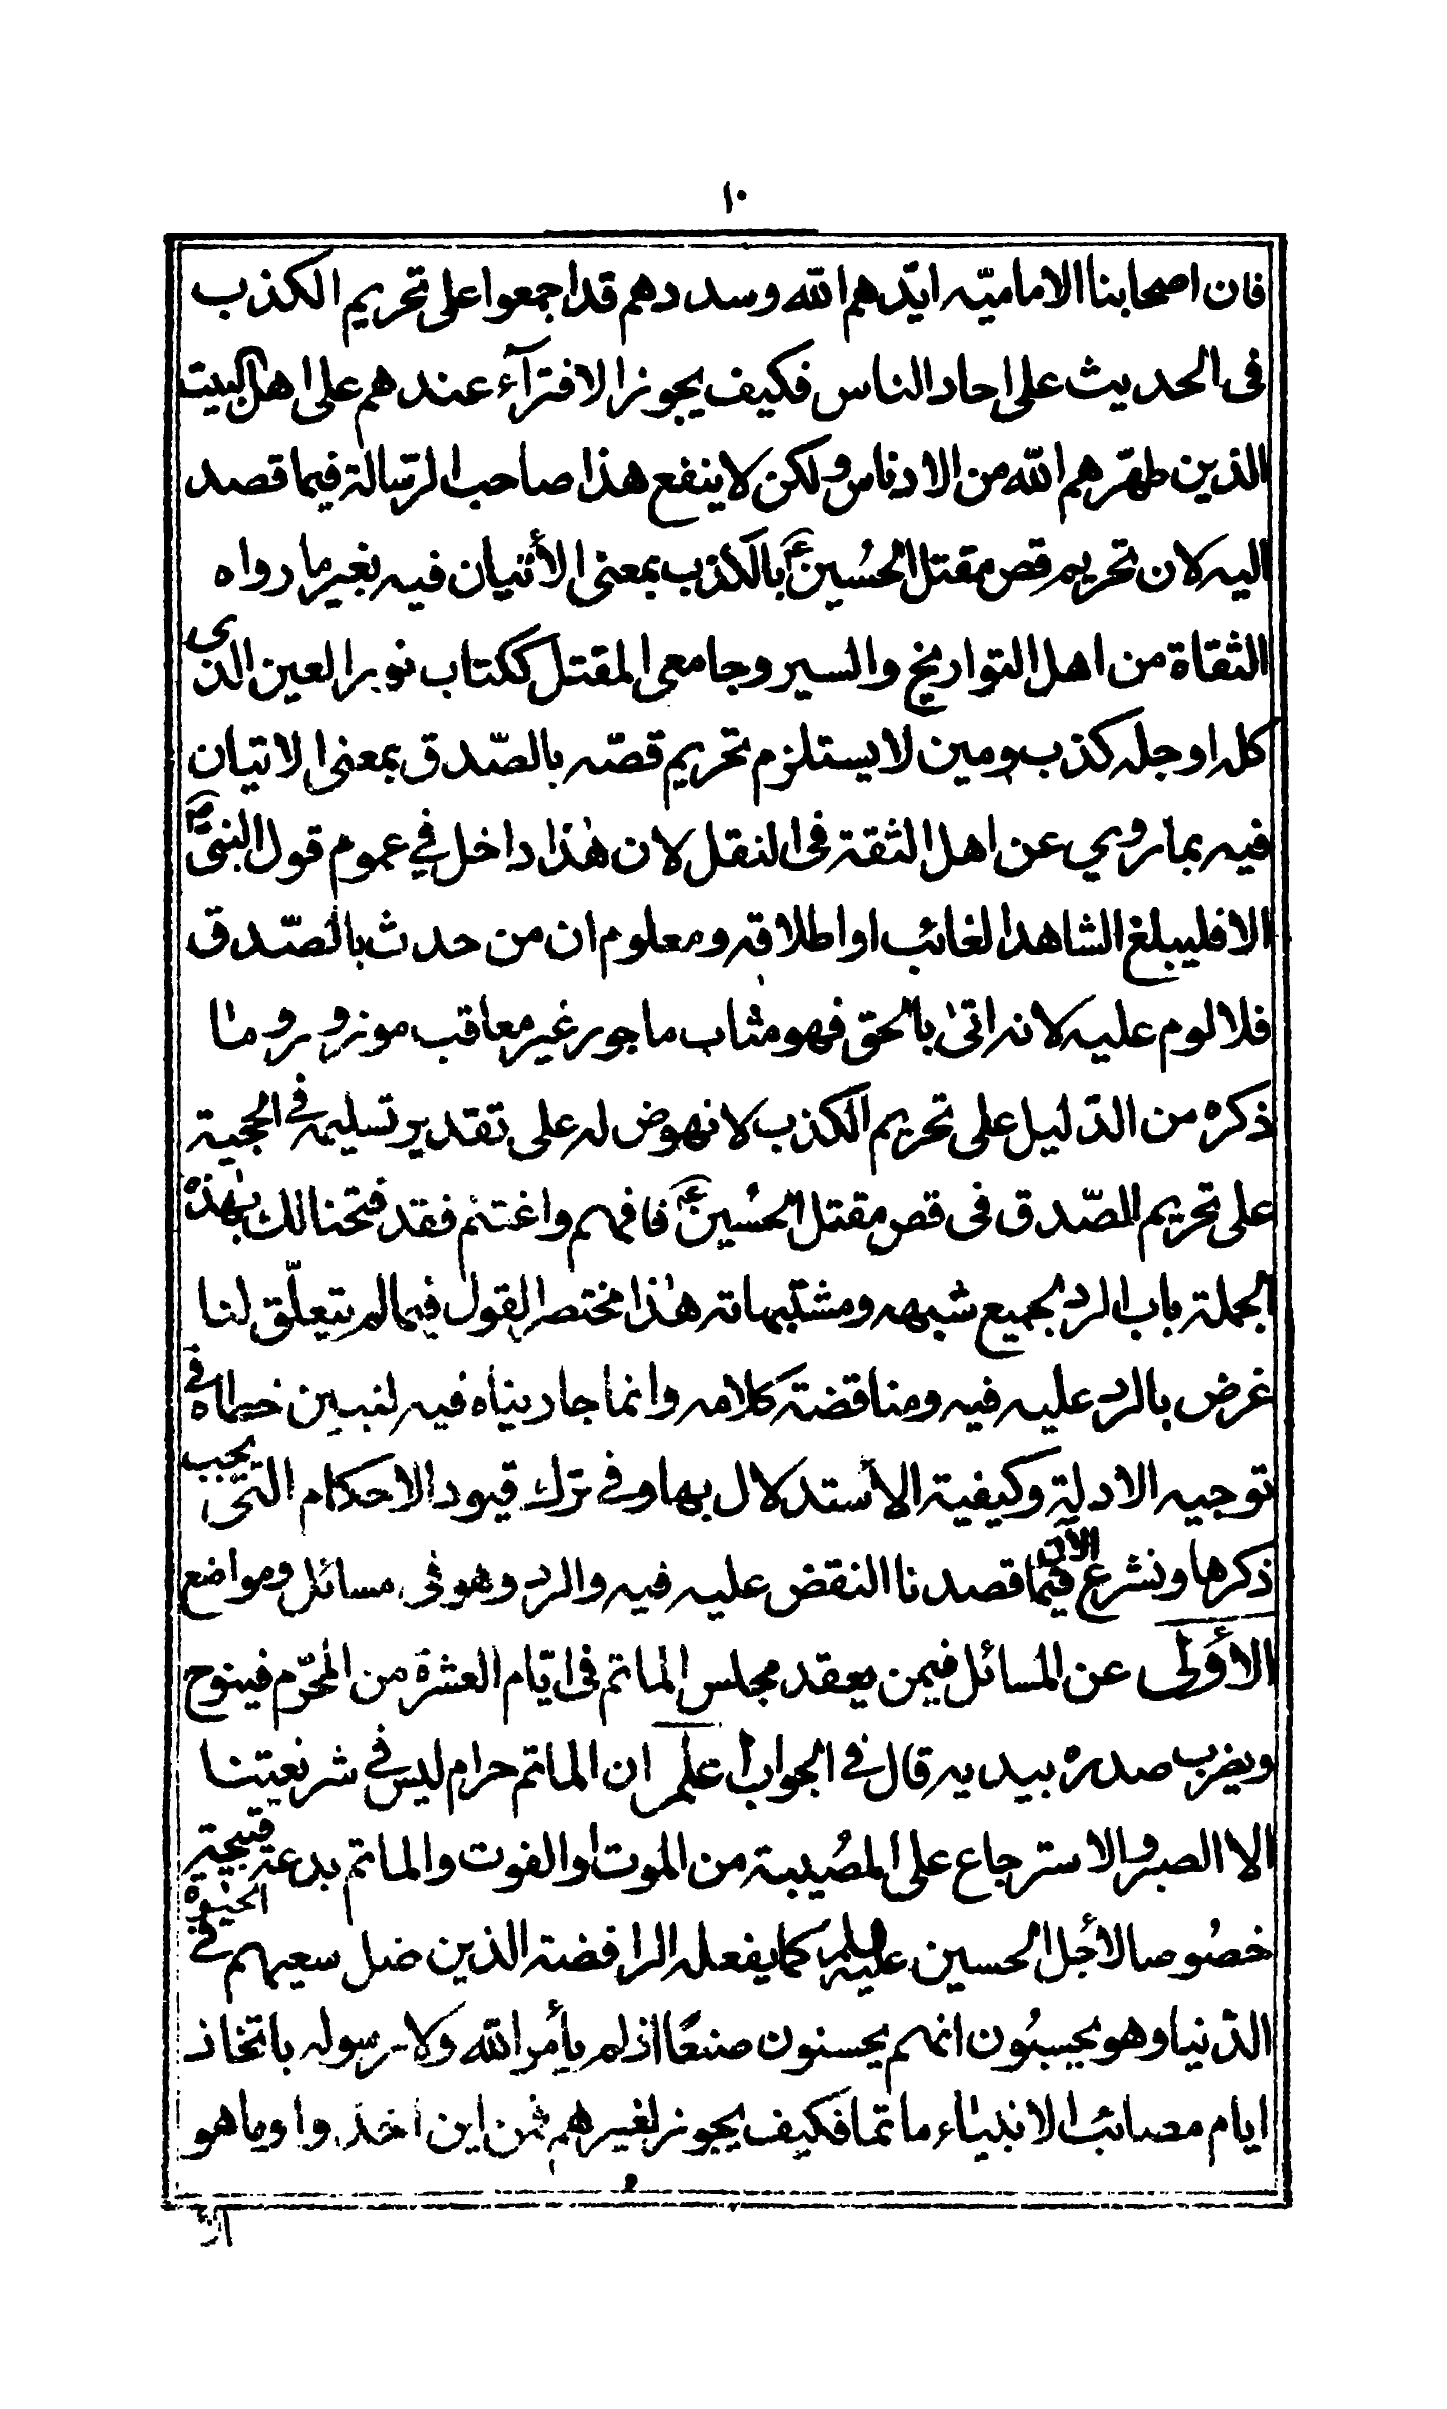 ١٠
فان اصحابنا الاماميّه ايّدهم الله وسددهم قد اجمعوا على تحريم الكذب
فى الحديث على احاد الناس فكيف يجوز الافترآء عندهم على اهل البيت
الذين طهّرهم الله من الادناس ولكن لا ينفع هذا صاحب الرّسالة فيما قصد
اليه لان تحريم قص مقتل الحُسينؑ بالكذب بمعنى الأتيان فيه بغير ما رواه
الثقاة من اهل التواريخ والسير وجامعى المقتل ككتاب نور العين الذى
كله او جله كذب ومين لا يستلزم تحريم قصّه بالصّدق بمعنى الاتيان
فيه بما روي عن اهل الثقة فى النقل لان هٰذا داخل في عموم قول النبىّؐ
الا فليبلغ الشاهد الغائب او اطلاقه ومعلوم ان من حدث بالصّدق
فلا لوم عليه لانه اتىٰ بالحق فهو مثاب ماجور غير معاقب موزور وما
ذكره من الدّليل على تحريم الكذب لا نهوض له على تقدير تسليمه في الحجية
على تحريم الصّدق فى قص مقتل الحُسينؑ فافهم واغتنم فقد فتحنا لك بهٰذه
الجملة باب الرد لجميع شبهه ومشتبهاته هٰذا مختصر القول فيما لم يتعلّق لنا
غرض بالرد عليه فيه ومناقضة كلامه وانما جاريناه فيه لنبين خطاه في
توجيه الادلة وكيفية الأستدلال بها وفي ترك قيود الاحكام التى يجب
ذكرها ونشرع الآن فيما قصدنا النقض عليه فيه والرد وهو فى مسائل ومواضع
الأولى عن المسائل فيمن يعقد مجلس الماتم فى ايّام العشرة من المحرّم فينوح
ويضرب صدره بيديه قال في الجواب اعلم ان الماتم حرام ليس في شريعتنا
الا الصبر والاسترجاع على المصُيبة من الموت او الفوت والماتم بدعة قبيحة
خصُوصا لاجل الحسين عليه السلم كما يفعله الرافضة الذين ضل سعيهم في الحيٰوة
الدّنيا وهو يحسبُون انهم يحسنون صنعًا اذ لم يأمر الله ولا رسوله باتخاذ
ايام مصائب الانبيٰاء ماتما فكيف يجوز لغيرهم فمن اين اخذوا وما هو